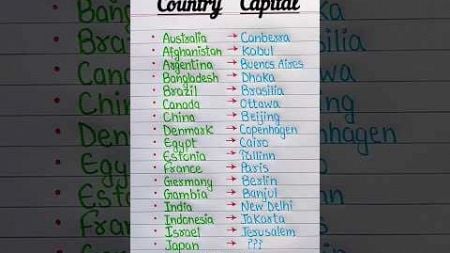 Country Capital
• Australia → Canberra
• Afghanistan → Kabul
• Argentina → Buenos Aires
• Bangladesh → Dhaka
• Brazil → Brasilia
• Canada → Ottawa
• China → Beijing
• Denmark → Copenhagen
• Egypt → Cairo
• Estonia → Tallinn
• France → Paris
• Germany → Berlin
• Gambia → Banjul
• India → New Delhi
• Indonesia → Jakarta
• Israel → Jerusalem
• Japan → ???